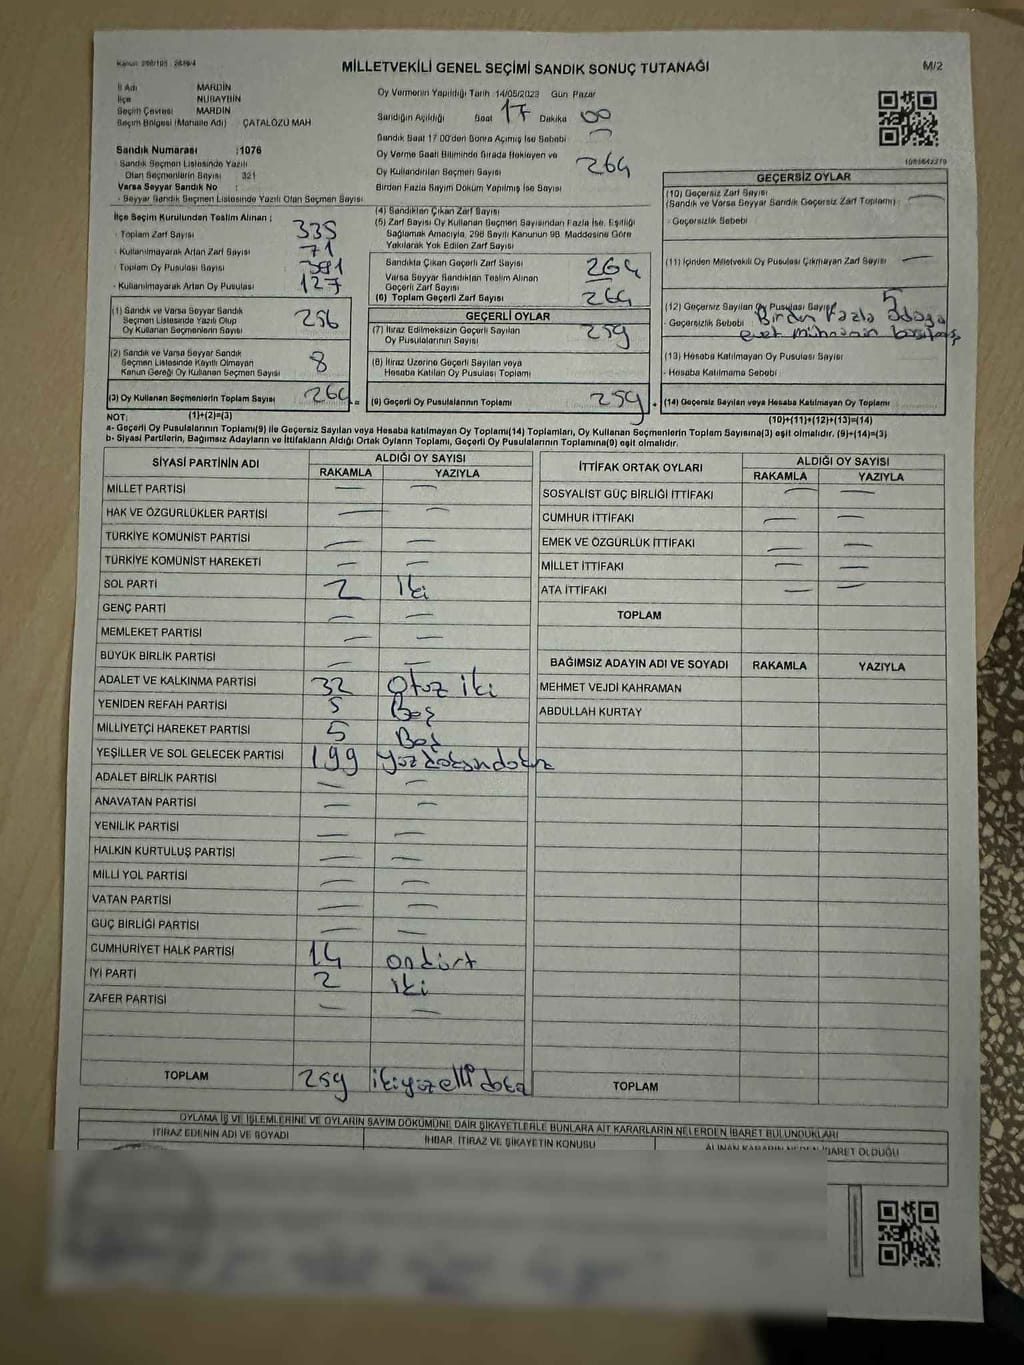 MİLLETVEKİLİ GENEL SEÇİMİ SANDIK SONUÇ TUTANAĞI
M/2
İl Adı MARDİN
İlçe NUSAYBİN
Seçim Çevresi MARDİN
Seçim Bölgesi (Mahalle Adı) ÇATALÖZÜ MAH
Sandık Numarası :1076
Sandık Seçmen Listesinde Yazılı
Olan Seçmenlerin Sayısı 321
Varsa Seyyar Sandık No :
Seyyar Sandık Seçmen Listesinde Yazılı Olan Seçmen Sayısı
Oy Vermenin Yapıldığı Tarih 14/05/2023 Gün Pazar
Sandığın Açıldığı Saat 17 Dakika 00
Sandık Saat 17 00'den Sonra Açılmış İse Sebebi
Oy Verme Saati Bitiminde Sırada Bekleyen ve
Oy Kullandırılan Seçmen Sayısı 264
Birden Fazla Sayım Döküm Yapılmış İse Sayısı
İlçe Seçim Kurulundan Teslim Alınan ;
Toplam Zarf Sayısı 335
Kullanılmayarak Artan Zarf Sayısı 71
Toplam Oy Pusulası Sayısı
Kullanılmayarak Artan Oy Pusulası 127
(1) Sandık ve Varsa Seyyar Sandık
Seçmen Listesinde Yazılı Olup
Oy Kullanan Seçmenlerin Sayısı 256
(2) Sandık ve Varsa Seyyar Sandık
Seçmen Listesinde Kayıtlı Olmayan
Kanun Gereği Oy Kullanan Seçmen Sayısı 8
(3) Oy Kullanan Seçmenlerin Toplam Sayısı 264
(4) Sandıktan Çıkan Zarf Sayısı
(5) Zarf Sayısı Oy Kullanan Seçmen Sayısından Fazla İse, Eşitliği
Sağlamak Amacıyla, 298 Sayılı Kanunun 98. Maddesine Göre
Yakılarak Yok Edilen Zarf Sayısı
Sandıkta Çıkan Geçerli Zarf Sayısı 264
Varsa Seyyar Sandıktan Teslim Alınan
Geçerli Zarf Sayısı
(6) Toplam Geçerli Zarf Sayısı 264
GEÇERLİ OYLAR
(7) İtiraz Edilmeksizin Geçerli Sayılan
Oy Pusulalarının Sayısı 259
(8) İtiraz Üzerine Geçerli Sayılan veya
Hesaba Katılan Oy Pusulası Toplamı
(9) Geçerli Oy Pusulalarının Toplamı 259
GEÇERSİZ OYLAR
(10) Geçersiz Zarf Sayısı
(Sandık ve Varsa Seyyar Sandık Geçersiz Zarf Toplamı)
- Geçersizlik Sebebi
(11) İçinden Milletvekili Oy Pusulası Çıkmayan Zarf Sayısı
(12) Geçersiz Sayılan Oy Pusulası Sayısı 5
- Geçersizlik Sebebi Birden Fazla adaya
evet mührünün
(13) Hesaba Katılmayan Oy Pusulası Sayısı
- Hesaba Katılmama Sebebi
(14) Geçersiz Sayılan veya Hesaba Katılmayan Oy Toplamı
NOT: (1)+(2)=(3) (10)+(11)+(12)+(13)=(14)
a- Geçerli Oy Pusulalarının Toplamı(9) ile Geçersiz Sayılan veya Hesaba katılmayan Oy Toplamı(14) Toplamları, Oy Kullanan Seçmenlerin Toplam Sayısına(3) eşit olmalıdır. (9)+(14)=(3)
b- Siyasi Partilerin, Bağımsız Adayların ve İttifakların Aldığı Ortak Oyların Toplamı, Geçerli Oy Pusulalarının Toplamına(9) eşit olmalıdır.
SİYASİ PARTİNİN ADI ALDIĞI OY SAYISI
RAKAMLA YAZIYLA
MİLLET PARTİSİ — —
HAK VE ÖZGÜRLÜKLER PARTİSİ — —
TÜRKİYE KOMÜNİST PARTİSİ — —
TÜRKİYE KOMÜNİST HAREKETİ — —
SOL PARTİ 2 İki
GENÇ PARTİ — —
MEMLEKET PARTİSİ — —
BÜYÜK BİRLİK PARTİSİ — —
ADALET VE KALKINMA PARTİSİ 32 Otuz iki
YENİDEN REFAH PARTİSİ 5 Beş
MİLLİYETÇİ HAREKET PARTİSİ 5 Beş
YEŞİLLER VE SOL GELECEK PARTİSİ 199 yüzdoksandokuz
ADALET BİRLİK PARTİSİ — —
ANAVATAN PARTİSİ — —
YENİLİK PARTİSİ — —
HALKIN KURTULUŞ PARTİSİ — —
MİLLİ YOL PARTİSİ — —
VATAN PARTİSİ — —
GÜÇ BİRLİĞİ PARTİSİ — —
CUMHURİYET HALK PARTİSİ 14 ondört
İYİ PARTİ 2 iki
ZAFER PARTİSİ — —
TOPLAM 259 ikiyüzelli
İTTİFAK ORTAK OYLARI ALDIĞI OY SAYISI
RAKAMLA YAZIYLA
SOSYALİST GÜÇ BİRLİĞİ İTTİFAKI — —
CUMHUR İTTİFAKI — —
EMEK VE ÖZGÜRLÜK İTTİFAKI — —
MİLLET İTTİFAKI — —
ATA İTTİFAKI — —
TOPLAM
BAĞIMSIZ ADAYIN ADI VE SOYADI RAKAMLA YAZIYLA
MEHMET VEJDİ KAHRAMAN
ABDULLAH KURTAY
TOPLAM
OYLAMA İŞ VE İŞLEMLERİNE VE OYLARIN SAYIM DÖKÜMÜNE DAİR ŞİKAYETLERLE BUNLARA AİT KARARLARIN NELERDEN İBARET BULUNDUKLARI
İTİRAZ EDENİN ADI VE SOYADI
İHBAR, İTİRAZ VE ŞİKAYETİN KONUSU
ALINAN KARARIN NEDEN İBARET OLDUĞU